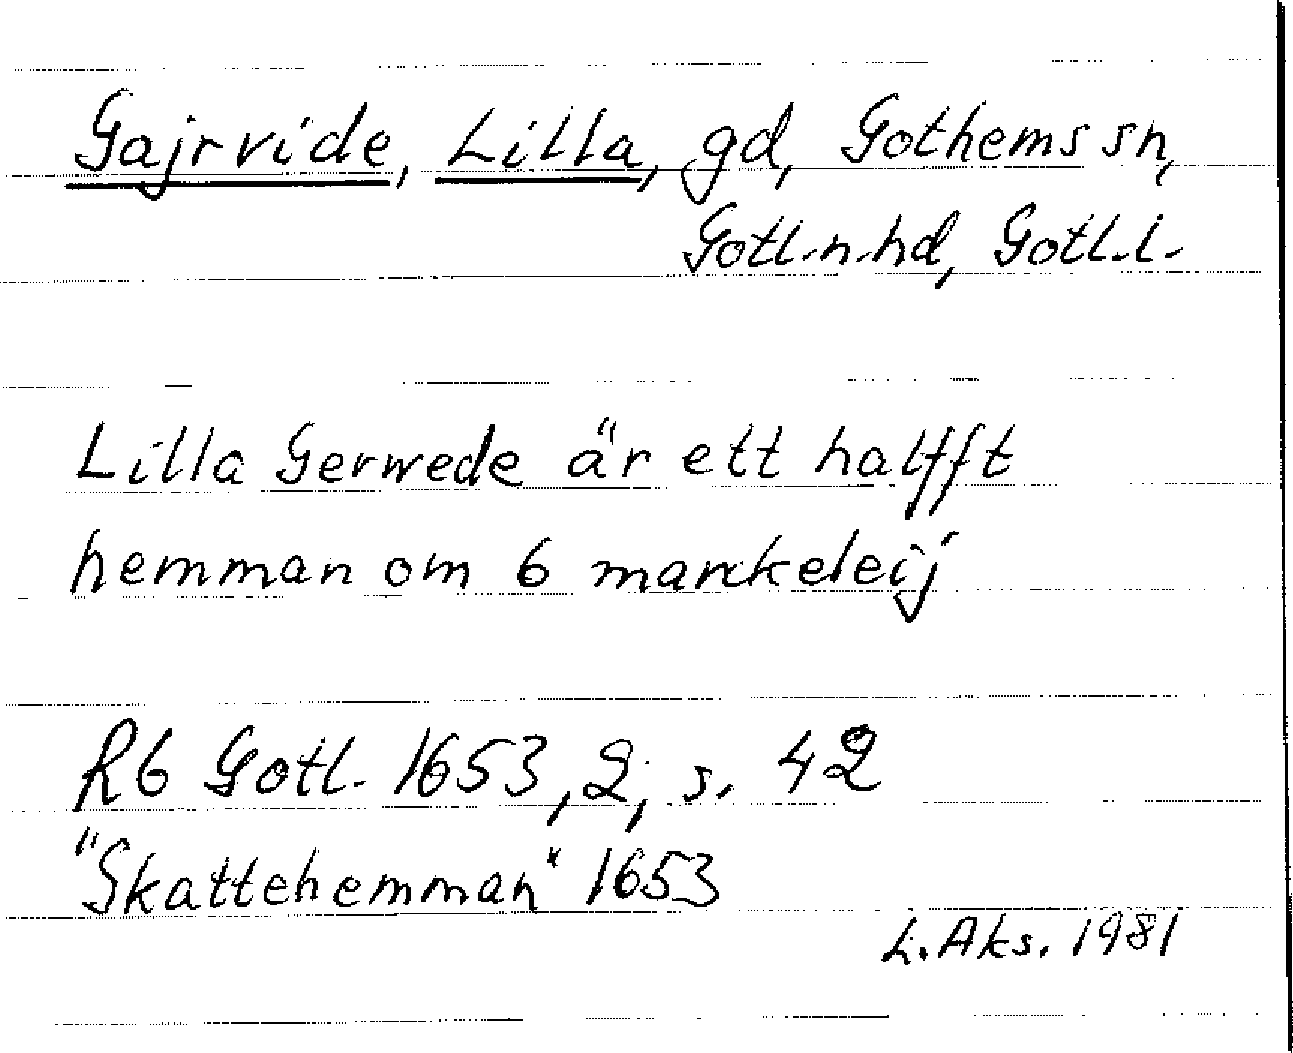 Gajrvide, Lilla, gd, Gothems sn,
Gotl.n.hd, Gotl.l.
Lilla Gerwede är ett halfft
hemman om 6 marckeleij
Rb Gotl. 1653,2, s. 42
"Skattehemman" 1653
L. Aks. 1981